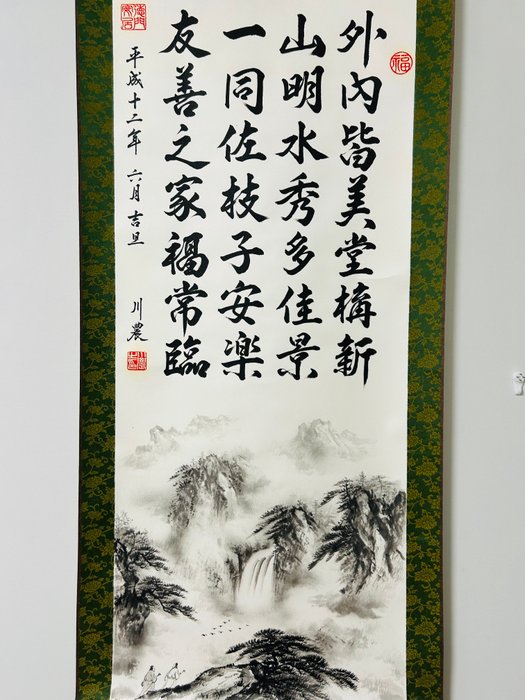 福
外內皆美堂構新
山明水秀多佳景
一同佐枝子安楽
友善之家福常臨
平成十二年 六月吉旦 川農